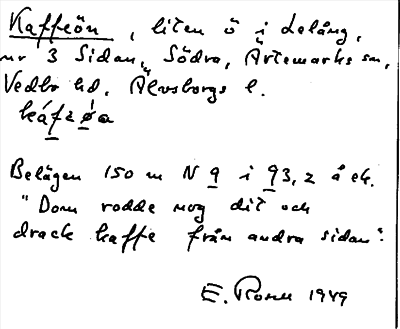 Kaffeön, liten ö i Lelång,
nr 3 Sidan, Södra, Ärtemarks sn,
Vedbo hd, Älvsborgs l.
Belägen 150 m N 9 i 93, 2 å ek.
"Dom rodde nog dit och
drack kaffe från andra sidan".
E. Rosu 1949